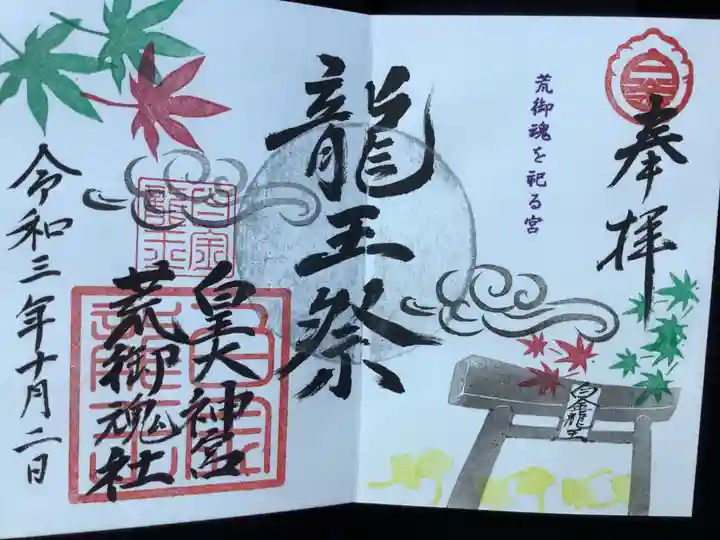 奉拝
荒御魂を祀る宮
白金龍王
龍王祭
皇大神宮
荒御魂社
令和三年十月二日